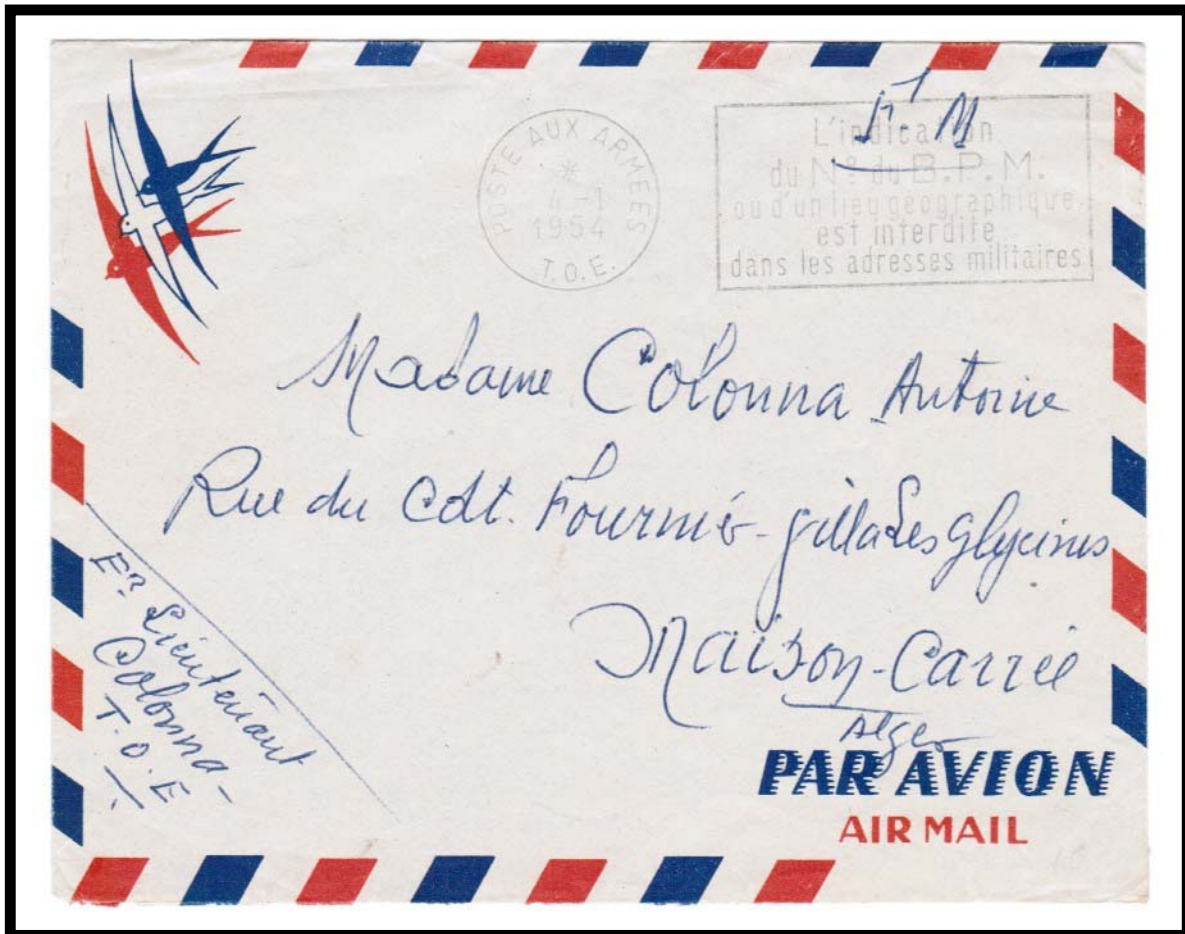 POSTE AUX ARMEES
*
4 -1
1954
T.O.E.
F M
L'indication
du N° du B.P.M.
ou d'un lieu géographique
est interdite
dans les adresses militaires
Madame Colonna Antoine
Rue du Cdt. Fournié - Villa Les Glycines
Maison-Carrée
Alger
Er Lieutenant
Colonna -
T.O.E
PAR AVION
AIR MAIL